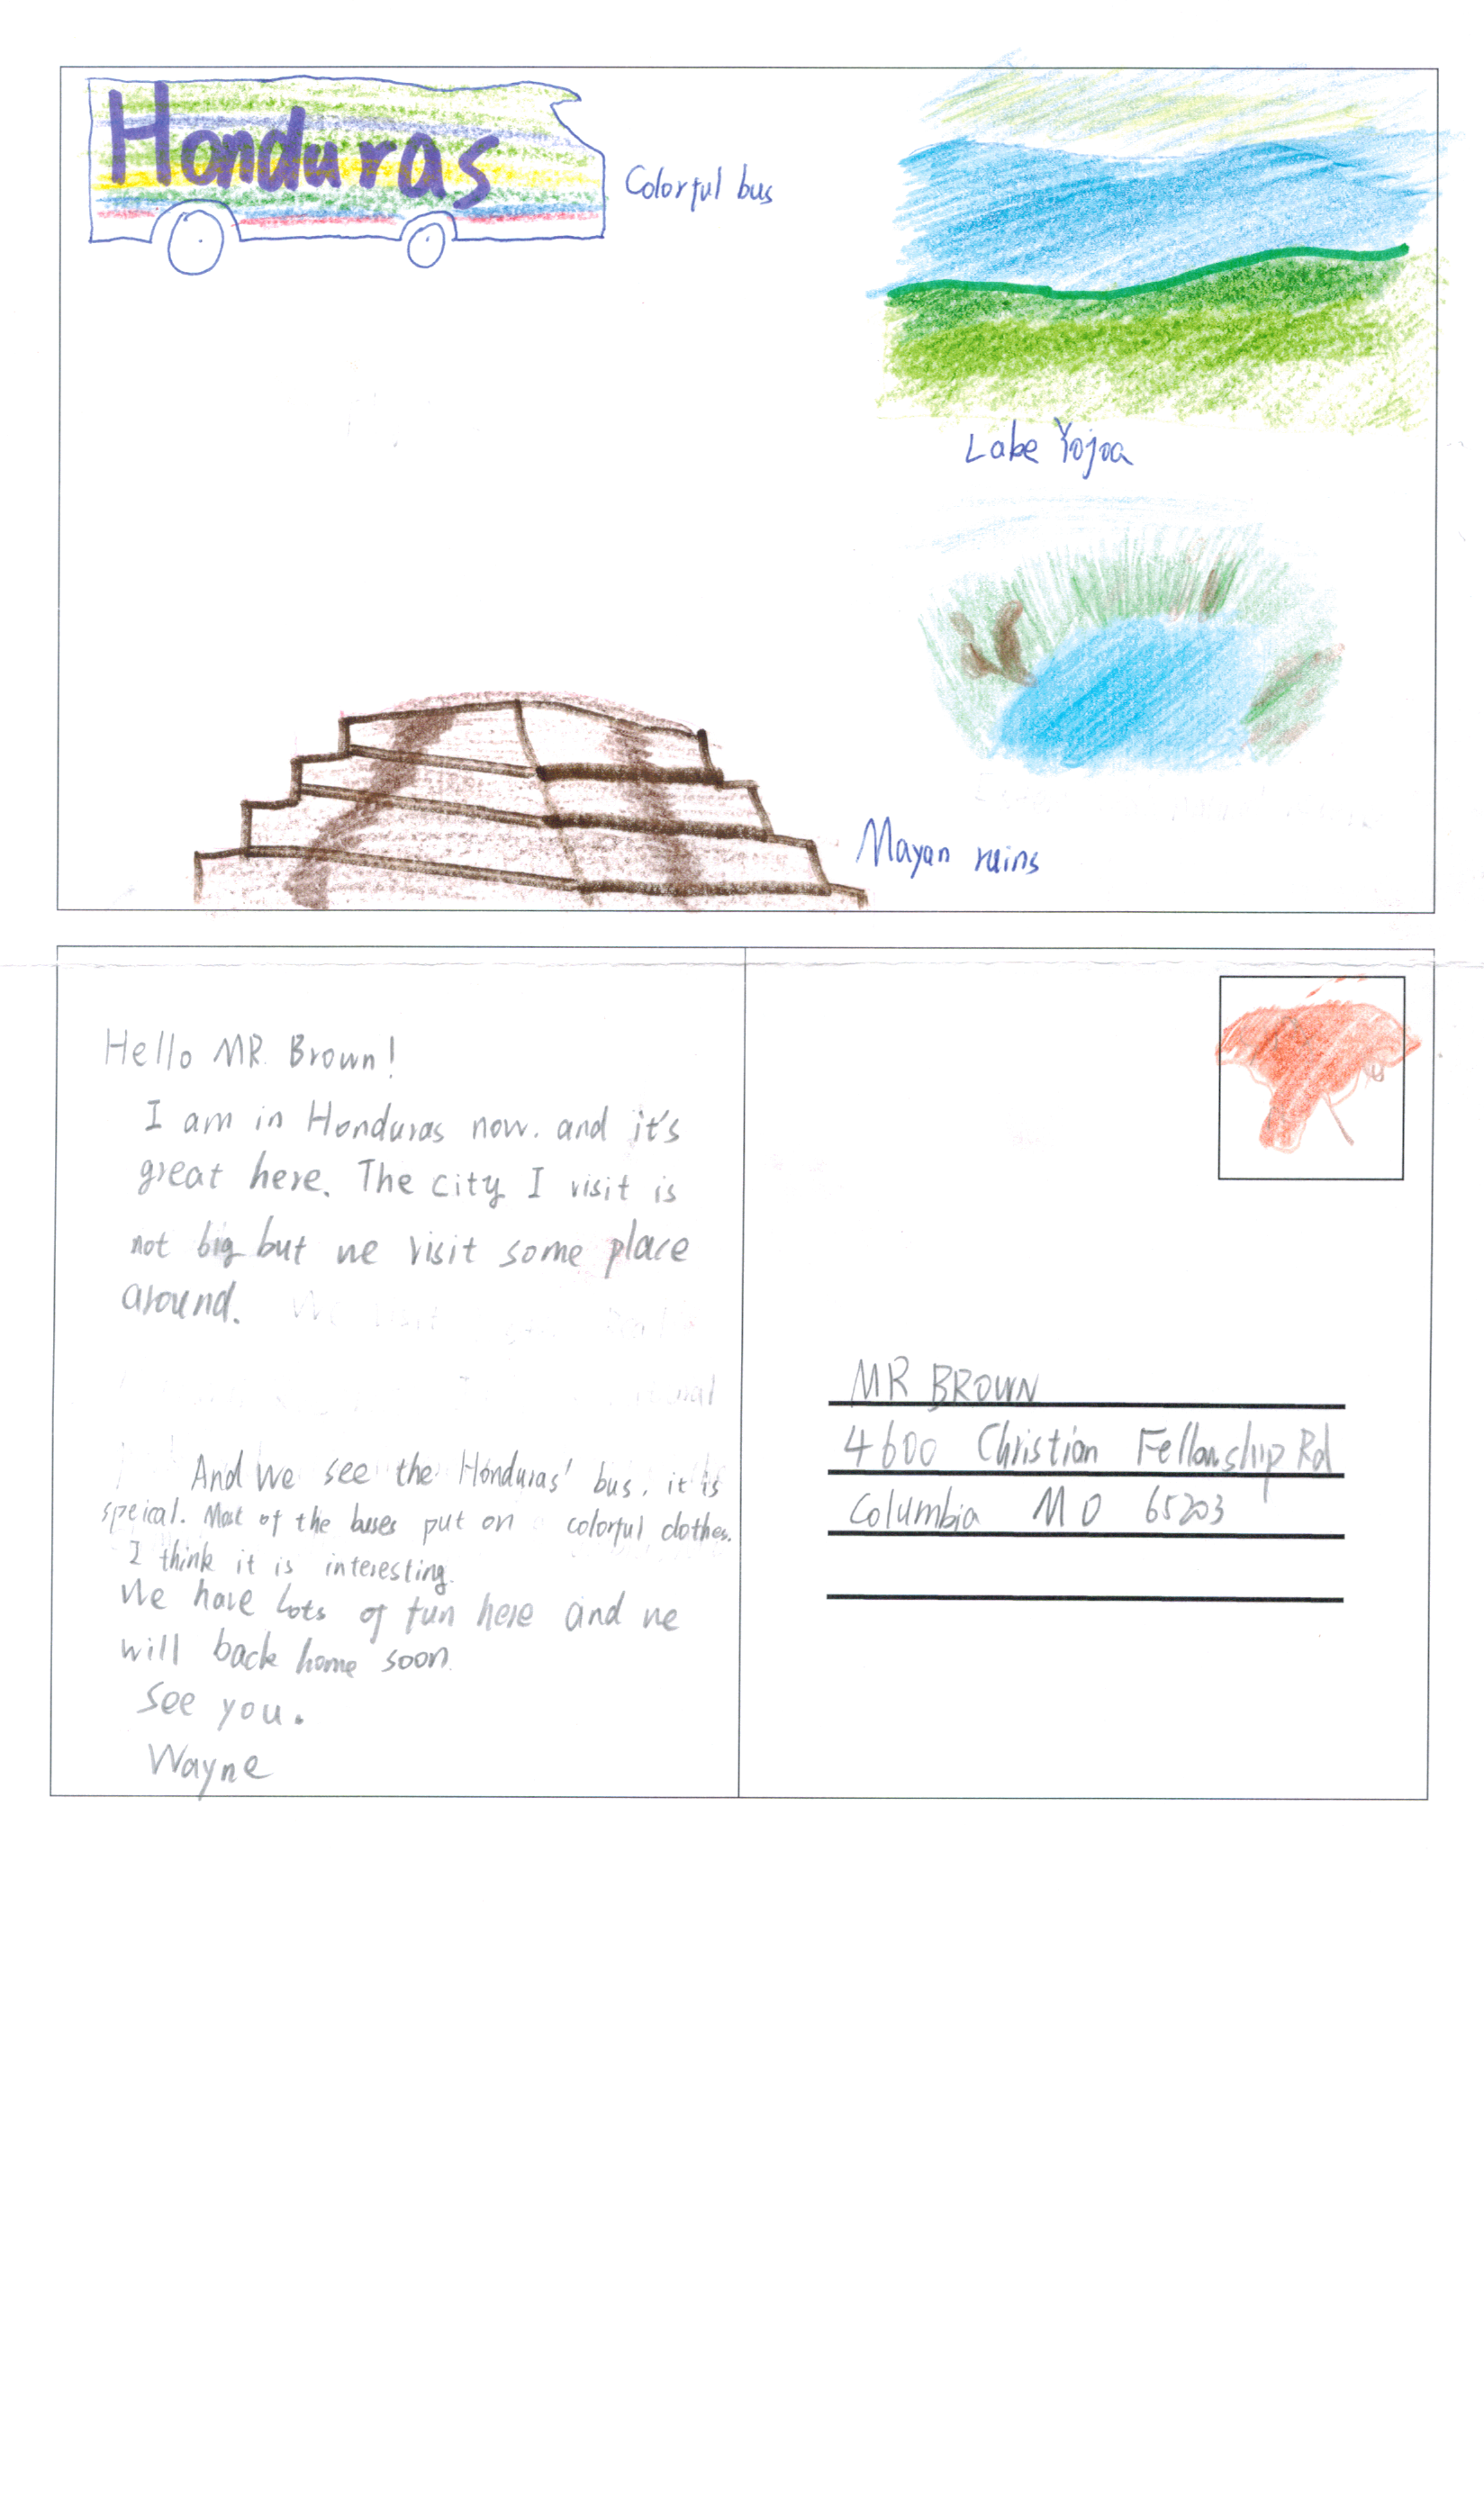 Honduras
Colorful bus
Labe Yojoa
Mayan ruins
Hello MR. Brown!
I am in Honduras now. and it's
great here. The city I visit is
not big but we visit some place
around.
And we see the Honduras' bus, it is
speical. Most of the buses put on colorful clothes.
I think it is interesting.
We have lots of fun here and we
will back home soon.
See you.
Wayne
MR BROWN
4600 Christian Fellowship Rd
Columbia MO 65203